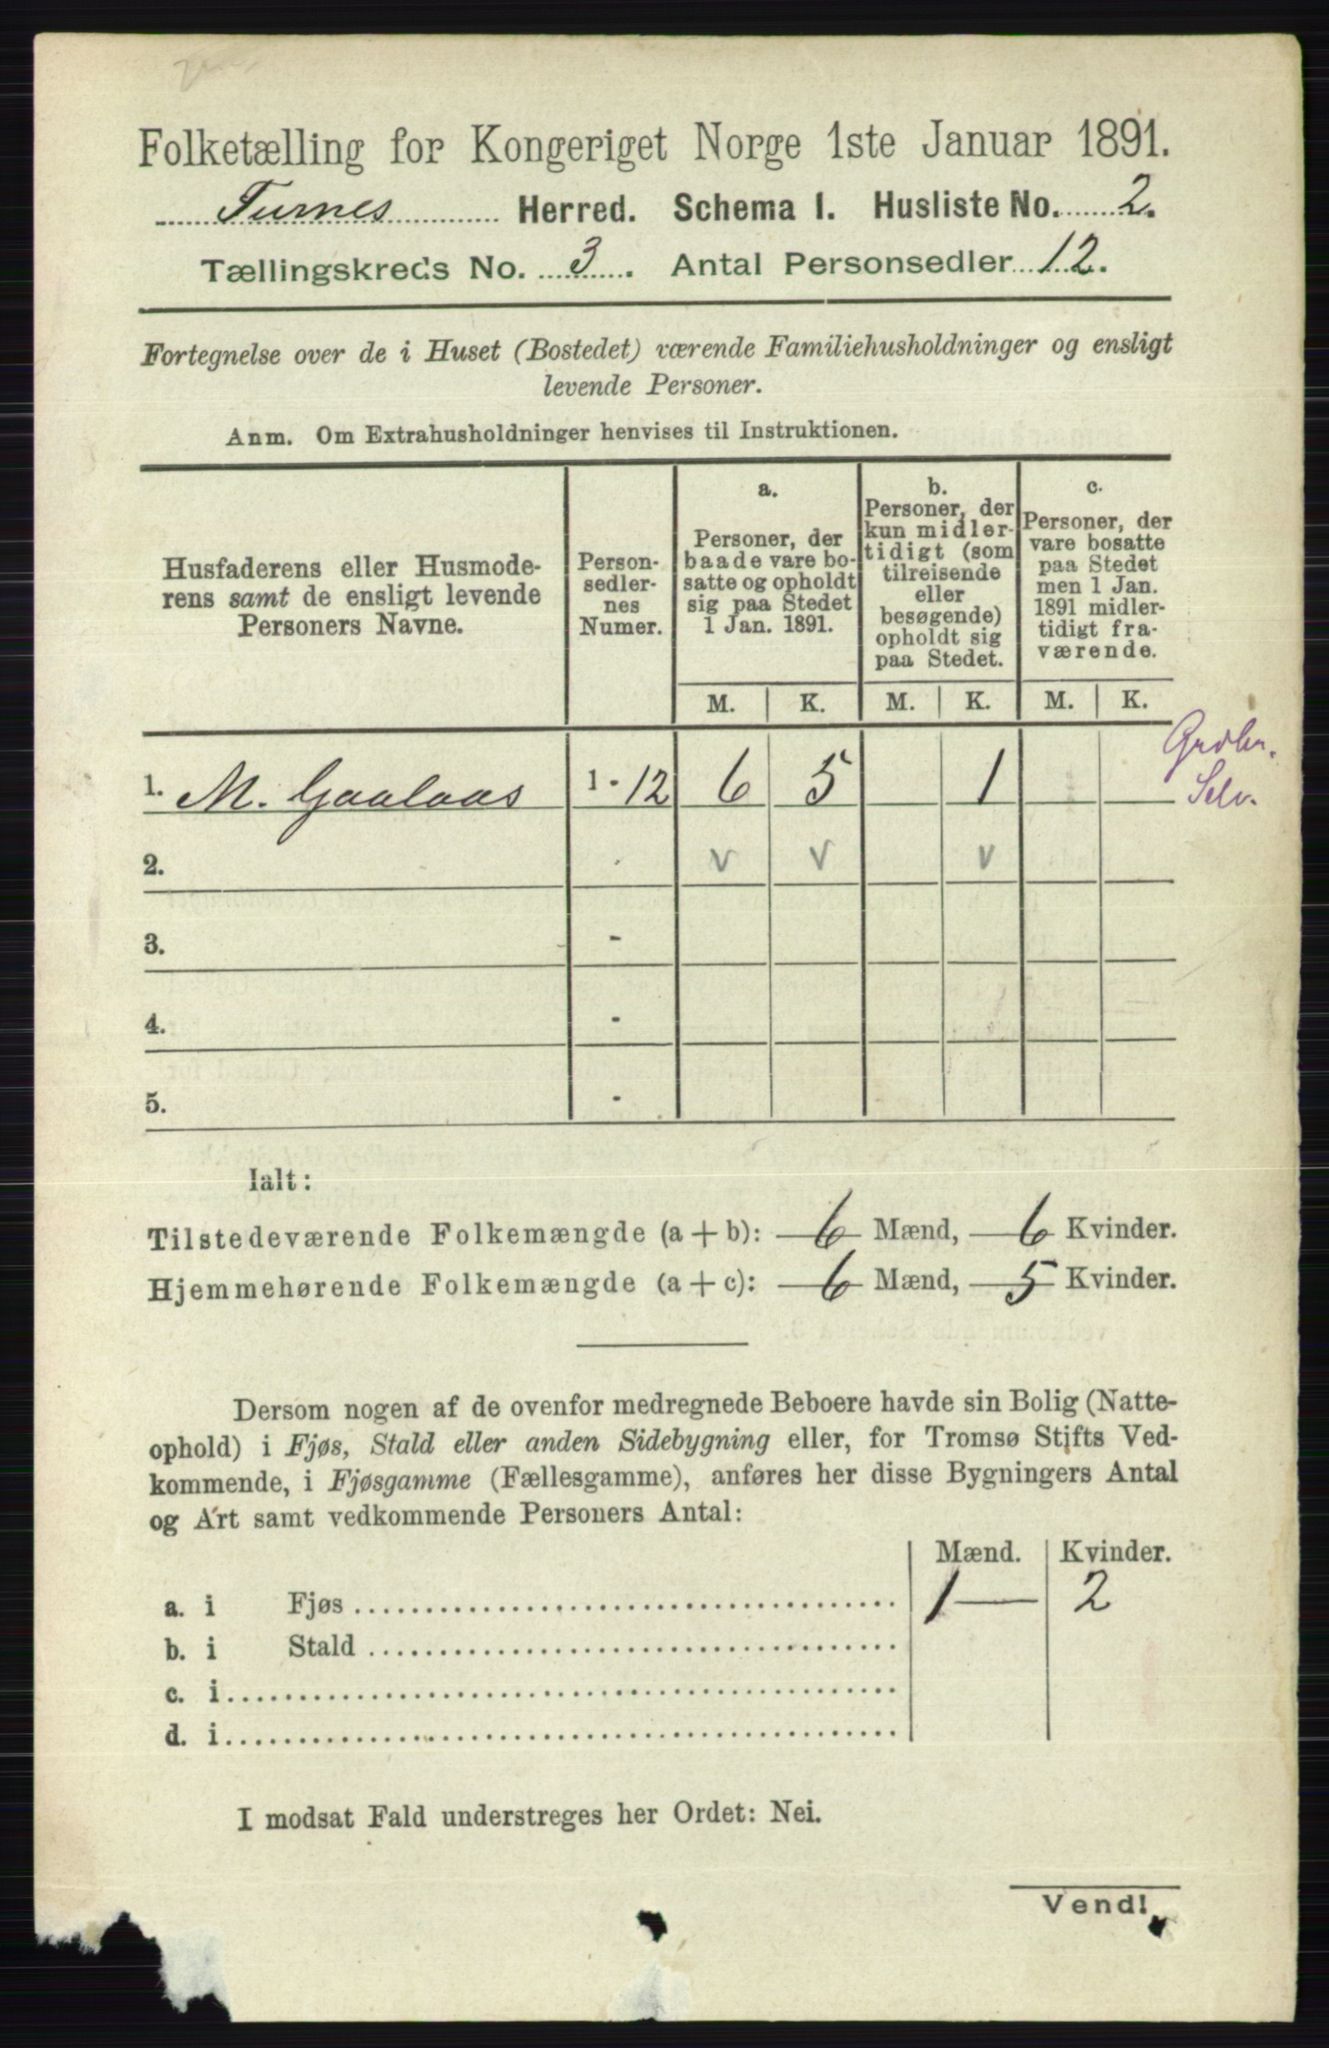 Folketælling for Kongeriget Norge 1ste Januar 1891.
Furnes Herred. Schema 1. Husliste No. 2.
Tællingskreds No. 3. Antal Personsedler 12.
Fortegnelse over de i Huset (Bostedet) værende Familiehusholdninger og ensligt
levende Personer.
Anm. Om Extrahusholdninger henvises til Instruktionen.
Husfaderens eller Husmode-
rens samt de ensligt levende
Personers Navne.
Person-
sedler-
nes
Numer.
a.
Personer, der
baade vare bo-
satte og opholdt
sig paa Stedet
1 Jan. 1891.
b.
Personer, der
kun midler-
tidigt (som
tilreisende
eller
besøgende)
opholdt sig
paa Stedet.
c.
Personer, der
vare bosatte
paa Stedet
men 1 Jan.
1891 midler-
tidigt fra-
værende.
M. K. M. K. M. K.
1. M. Gaalaas 1 - 12 6 5 1
Selv.
2. v v v
3. -
4. -
5. -
Ialt:
Tilstedeværende Folkemængde (a + b): 6 Mænd, 6 Kvinder.
Hjemmehørende Folkemængde (a + c): 6 Mænd, 5 Kvinder.
Dersom nogen af de ovenfor medregnede Beboere havde sin Bolig (Natte-
ophold) i Fjøs, Stald eller anden Sidebygning eller, for Tromsø Stifts Ved-
kommende, i Fjøsgamme (Fællesgamme), anføres her disse Bygningers Antal
og Art samt vedkommende Personers Antal:
Mænd. Kvinder.
a. i Fjøs 1 — 2
b. i Stald
c. i
d. i
I modsat Fald understreges her Ordet: Nei.
Vend!